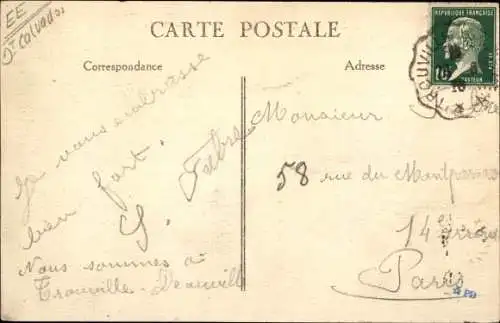 EE
Dt Calvados
CARTE POSTALE
Correspondance
Adresse
REPUBLIQUE FRANÇAISE
PASTEUR
TROUVIL
Je vous embrasse
bien fort.
S. Fabre
Nous sommes à
Trouville-Deauville
Monsieur
58 rue du Montparnasse
14e arr
Paris